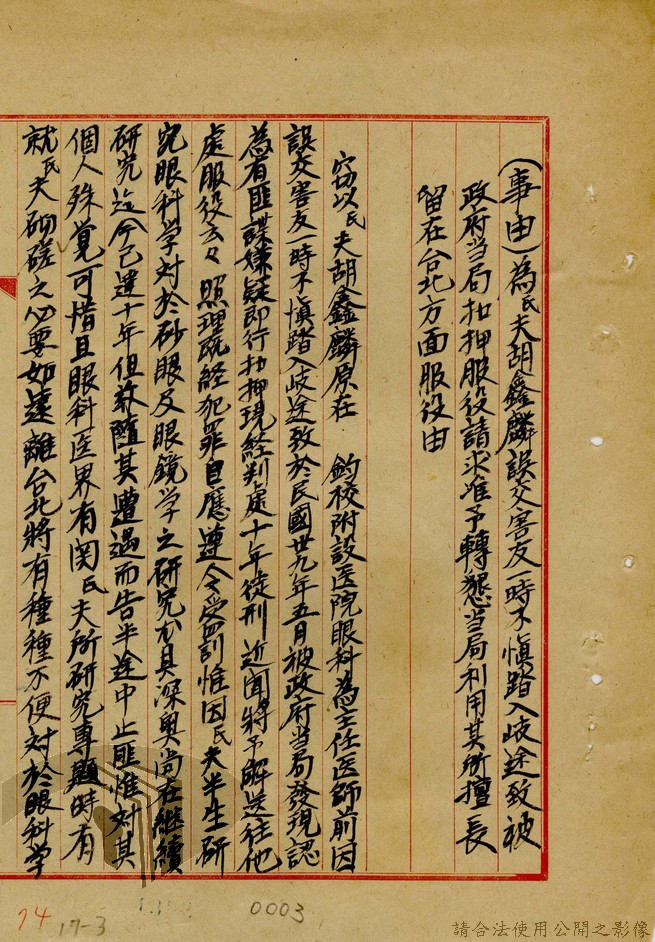 (事由)為民夫胡鑫麟誤交害友一時不慎踏入歧途致被
政府当局扣押服役請求准予轉懇当局利用其所擅長
留在台北方面服役由
窃以民夫胡鑫麟原在 鈞校附設医院眼科為主任医師前因
誤交害友一時不慎踏入歧途致於民國卅九年五月被政府当局發現認
為有匪諜嫌疑即行扣押現経判處十年徒刑 近聞將予解送往他
處服役云々 照理既経犯罪自應遵令受罰惟因民夫半生研
究眼科学対於砂眼及眼鏡学之研究尤具深奥尚在継續
研究迄今已達十年但竟隨其遭遇而告半途中止匪惟対其
個人殊覚可惜且眼科医界有関民夫所研究專題時有
就民夫砌磋之必要如遠離台北將有種種不便対於眼科学
74
17-3
0003
請合法使用公開之影像